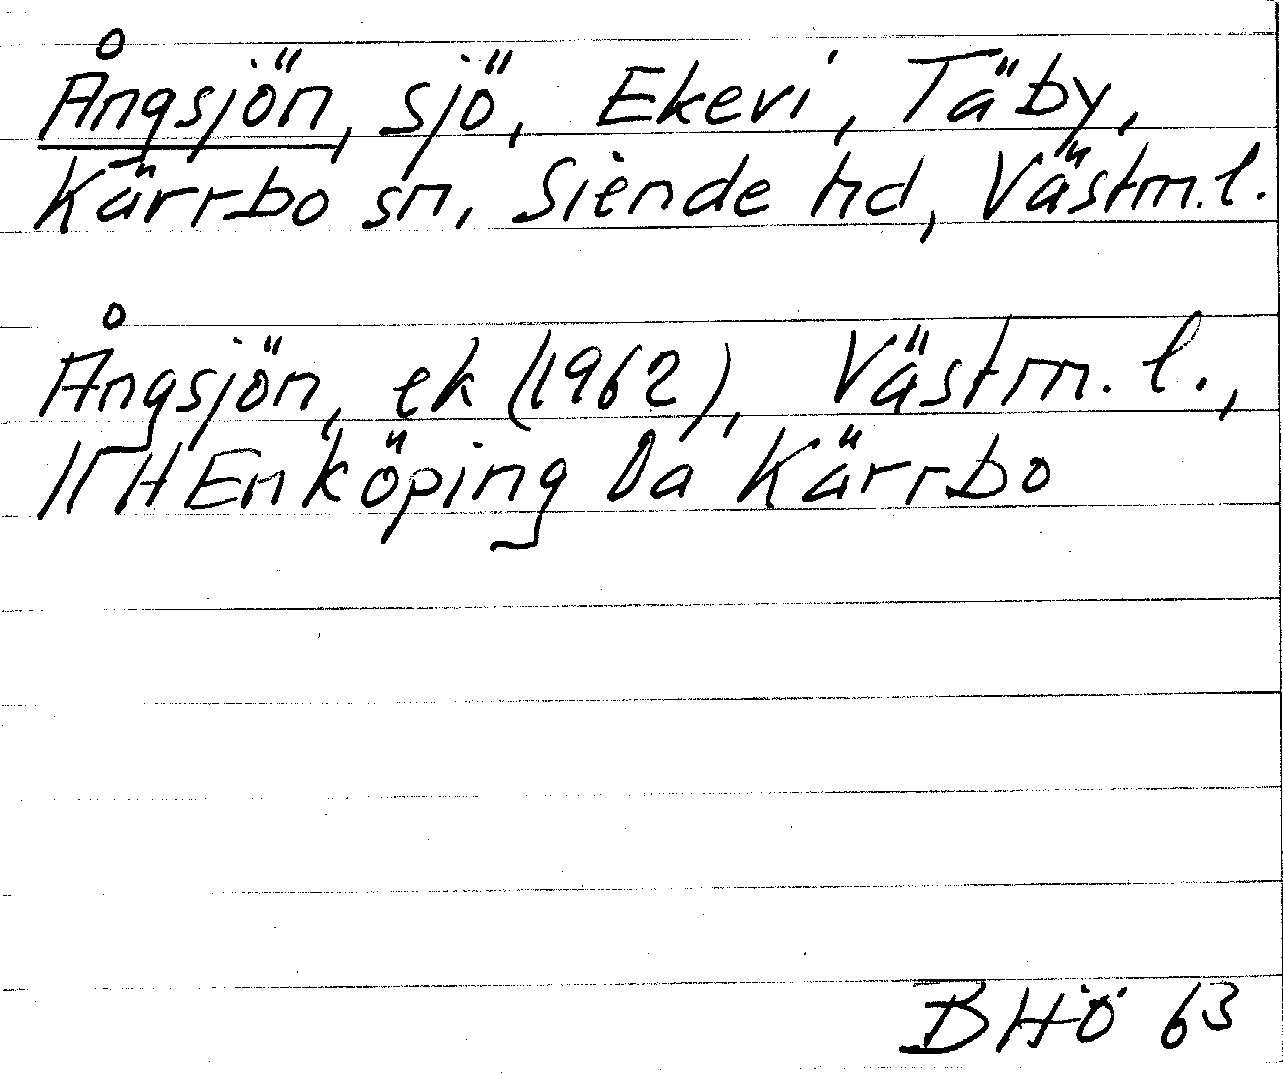 Ångsjön, sjö, Ekevi, Täby,
Kärrbo sn, Siende hd, Västm.l.
Ångsjön, ek (1962), Västm. l.,
11 H Enköping Da Kärrbo
BHÖ 63